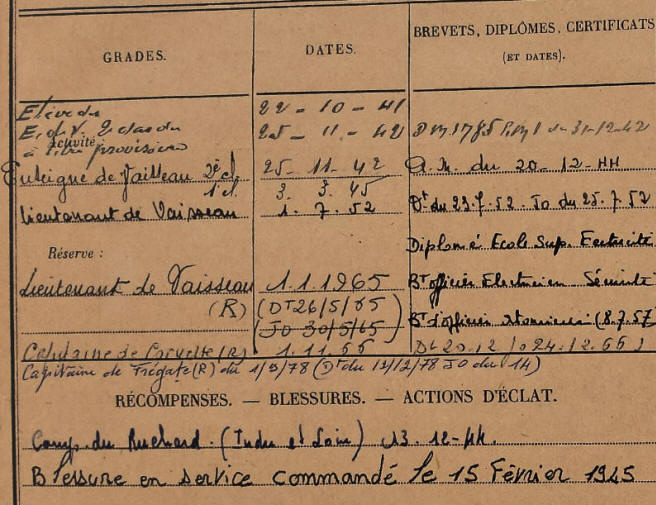 GRADES.
DATES.
BREVETS, DIPLÔMES, CERTIFICATS
(ET DATES).
Elève du
22 - 10 - 41
E. de V. 2 clas du
25 - 11 - 42
Activité
à titre provisoire
Enseigne de Vaisseau 2è cl.
25. 11. 42
A.M. du 20-12-44
1è cl.
3. 3. 45
Lieutenant de Vaisseau
1. 7. 52
Dt du 23.7.52 JO du 25.7.52
Diplomé Ecole Sup. Electricité
Réserve :
Lieutenant de Vaisseau
1.1.1965
Bt officier Electricien
(R)
(DT 26/5/65)
(JO 30/5/65)
Bt d'officier atomicien (8.7.57)
Capitaine de Corvette (R)
1.11.66
Dt 20.12 (24.12.66)
Capitaine de Frégate (R) du 1/9/78 (Dt du 12/12/78 JO du 14)
RÉCOMPENSES. — BLESSURES. — ACTIONS D'ÉCLAT.
Camp du Ruchard (Indre et Loire) 13-12-44.
Blessure en service commandé le 15 Février 1945